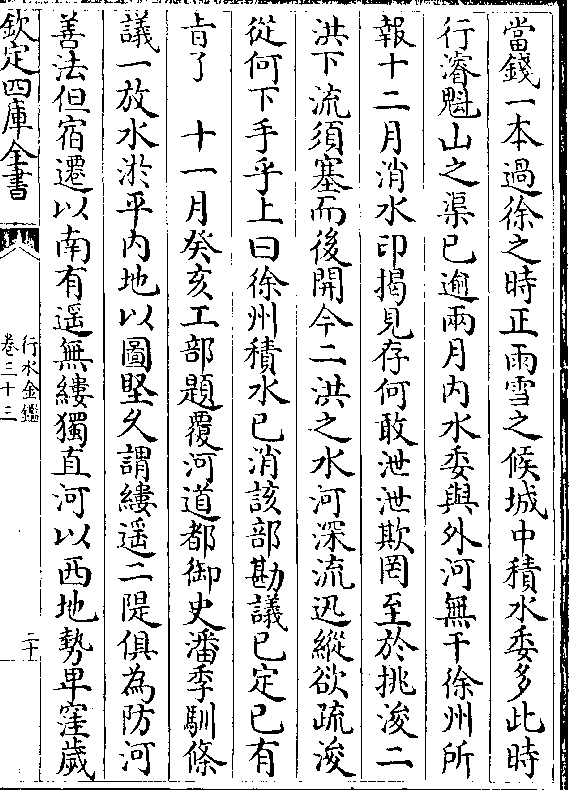 當錢一本過徐之時正雨雪之候城中積水委多此時
行濬魁山之渠已逾兩月内水委與外河無干徐州所
報十二月消水印揭見存何敢泄泄欺罔至於挑浚二
洪下流須塞而後開今二洪之水河深流迅縱欲疏浚
從何下手乎上曰徐州積水已消該部勘議已定已有
㫖了　十一月癸亥工部題覆河道都御史潘季馴條
議一放水淤平内地以圖堅久謂縷遥二隄俱為防河
善法但宿遷以南有遥無縷獨直河以西地勢卑窪歲
欽定四庫全書
行水金鑑
卷三十三
二十